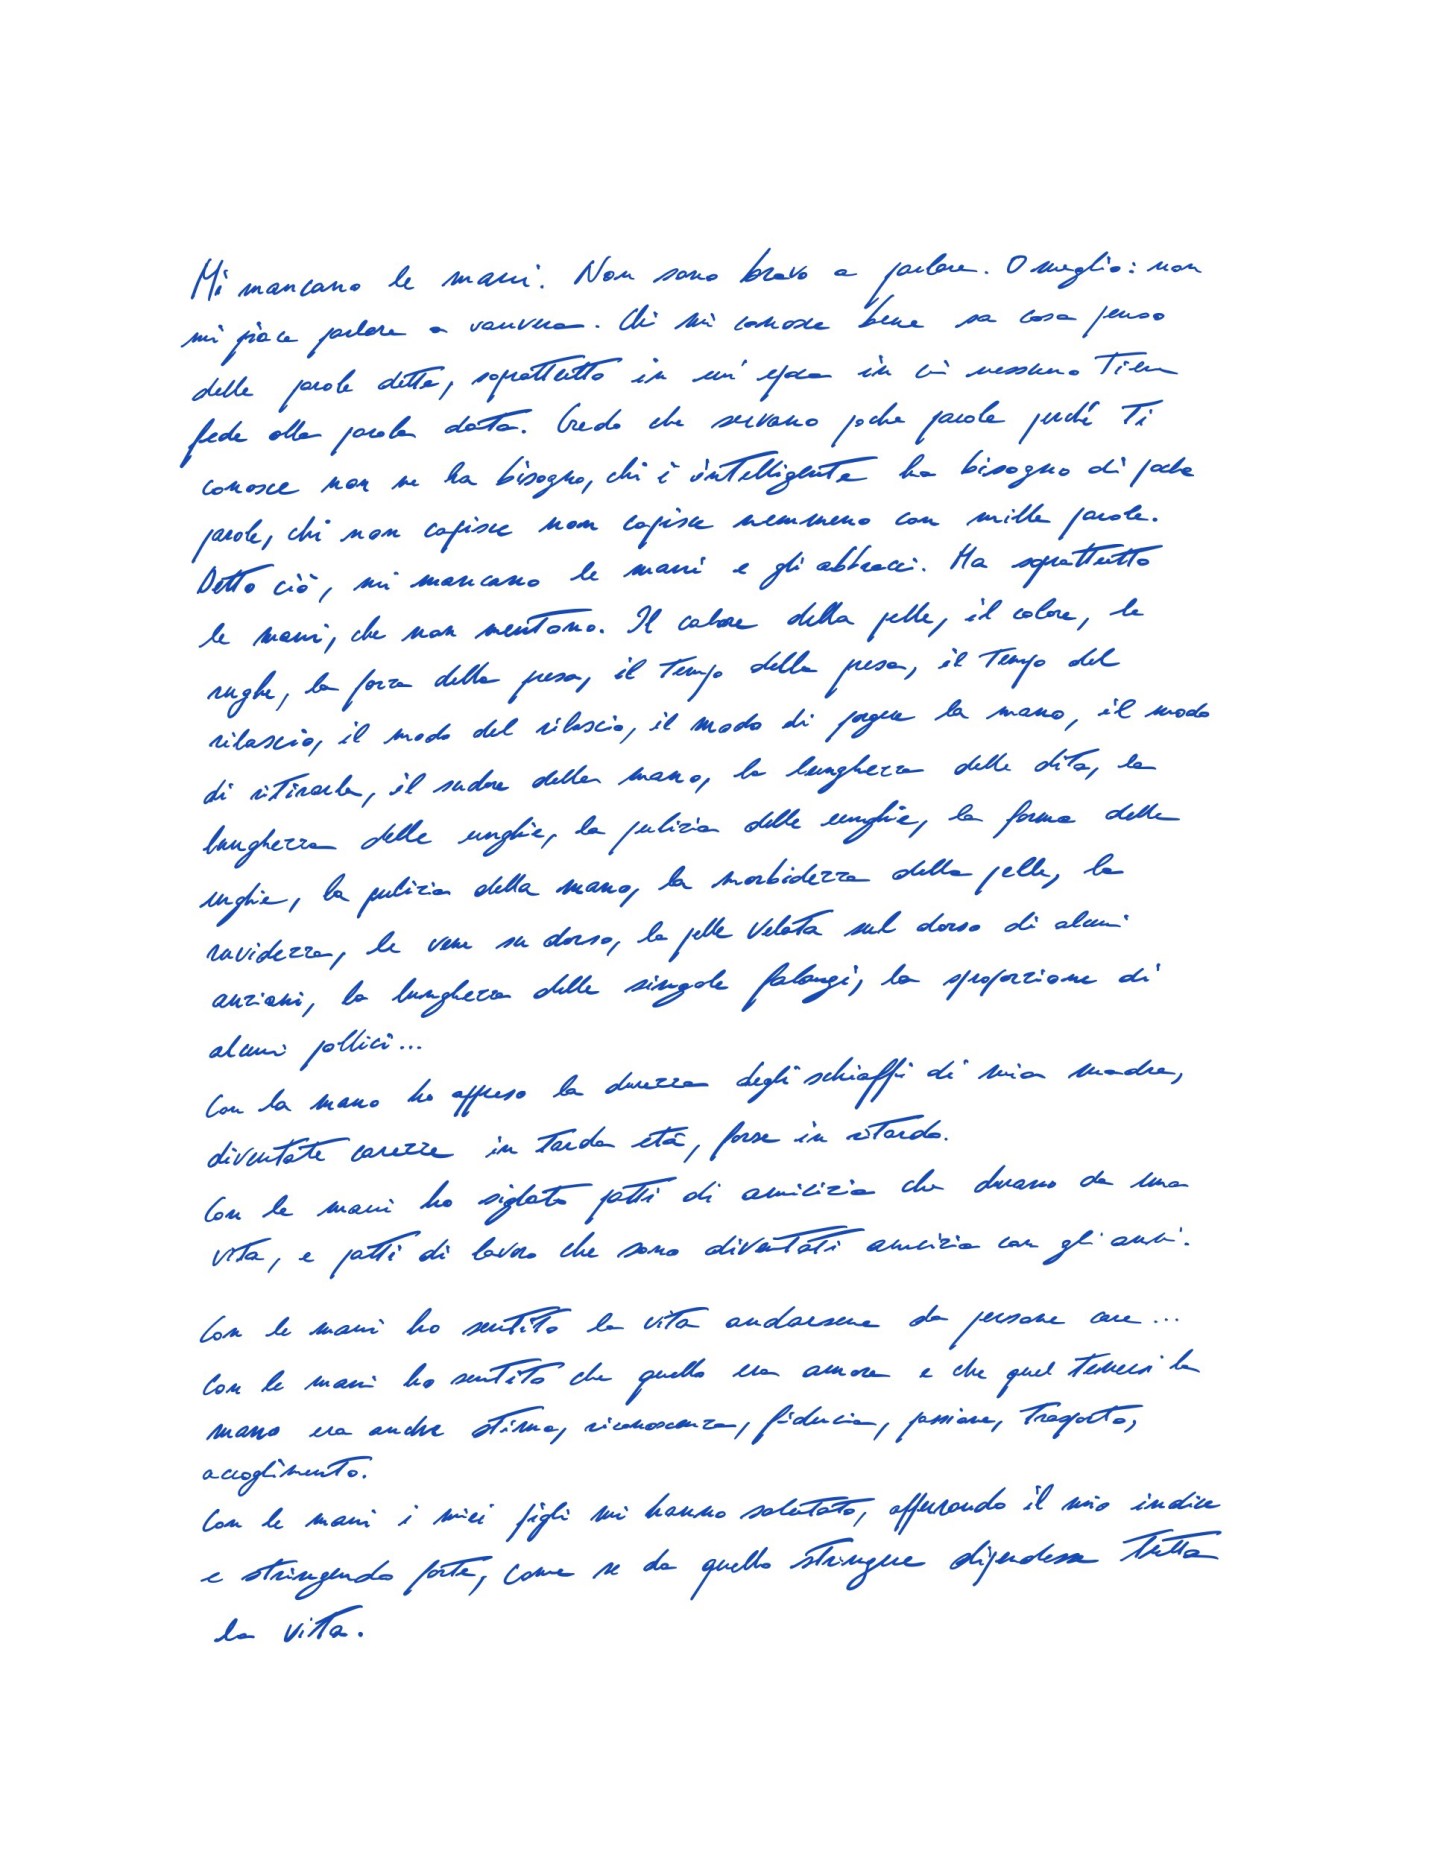 Mi mancano le mani. Non sono bravo a parlare. O meglio: non
mi piace parlare a vanvera. Chi mi conosce bene sa cosa penso
delle parole dette, soprattutto in un'epoca in cui nessuno tiene
fede alla parola data. Credo che servano poche parole perché ti
conosce non ne ha bisogno, chi è intelligente ha bisogno di poche
parole, chi non capisce non capisce nemmeno con mille parole.
Detto ciò, mi mancano le mani e gli abbracci. Ma soprattutto
le mani, che non mentono. Il calore della pelle, il colore, le
rughe, la forza della presa, il tempo della presa, il tempo del
rilascio, il modo del rilascio, il modo di porgere la mano, il modo
di ritirarla, il sudore della mano, la lunghezza delle dita, la
lunghezza delle unghie, la pulizia delle unghie, la forma delle
unghie, la pulizia della mano, la morbidezza della pelle, la
ruvidezza, le vene su dorso, la pelle velata sul dorso di alcuni
anziani, la lunghezza delle singole falangi, la sproporzione di
alcuni pollici...
Con la mano ho appreso la durezza degli schiaffi di mia madre,
diventate carezze in tarda età, forse in ritardo.
Con le mani ho siglato patti di amicizia che durano da una
vita, e patti di lavoro che sono diventati amicizia con gli anni.
Con le mani ho sentito la vita andarsene da persone care...
Con le mani ho sentito che quello era amore e che quel tenersi la
mano era anche stima, riconoscenza, fiducia, passione, trasporto,
accoglimento.
Con le mani i miei figli mi hanno salutato, afferrando il mio indice
e stringendo forte, come se da quello stringere dipendesse tutta
la vita.